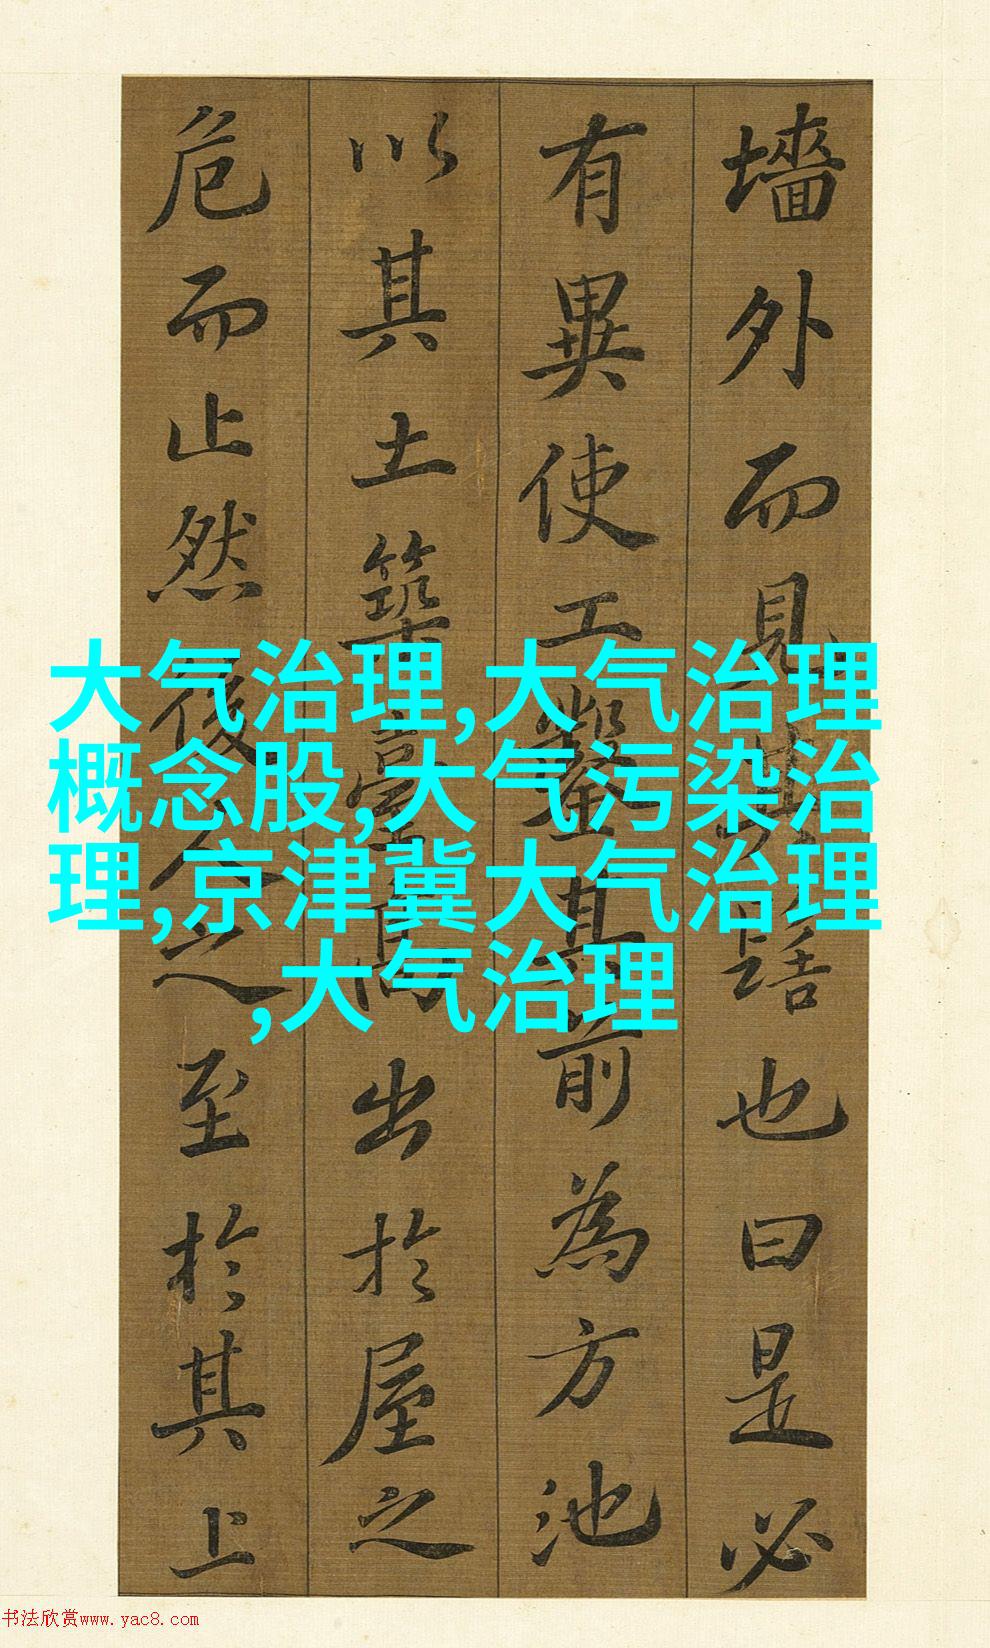 墻外而見其髻也曰是必
有異使工鑿其前為方池
以其土築臺高出於屋之
危而止然後人之至於其上
大气治理,大气治理
概念股,大气污染治
理,京津冀大气治理
,大气治理
书法欣赏www.yac8.com